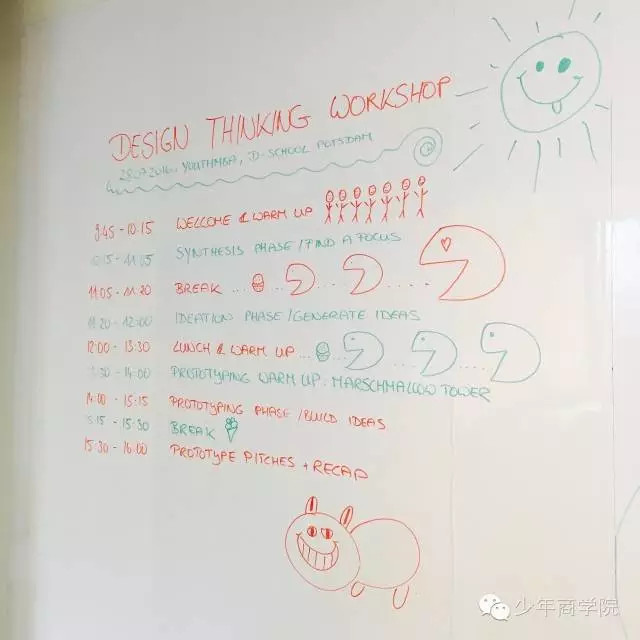 DESIGN THINKING WORKSHOP
28.07.2016, YOUTHMBA, D-SCHOOL POTSDAM
9:45 - 10:15 WELCOME & WARM UP
10:15 - 11:05 SYNTHESIS PHASE / FIND A FOCUS
11:05 - 11:20 BREAK
11:20 - 12:00 IDEATION PHASE / GENERATE IDEAS
12:00 - 13:30 LUNCH & WARM UP
13:30 - 14:00 PROTOTYPING WARM UP: MARSCHMALLOW TOWER
14:00 - 15:15 PROTOTYPING PHASE / BUILD IDEAS
15:15 - 15:30 BREAK
15:30 - 16:00 PROTOTYPE PITCHES + RECAP
少年商学院